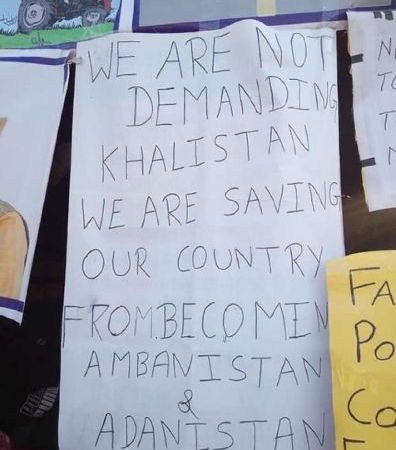 WE ARE NOT
DEMANDING
KHALISTAN
WE ARE SAVING
OUR COUNTRY
FROM BECOMEN
AMBANISTAN
&
ADANISTAN
FA
Po
Co